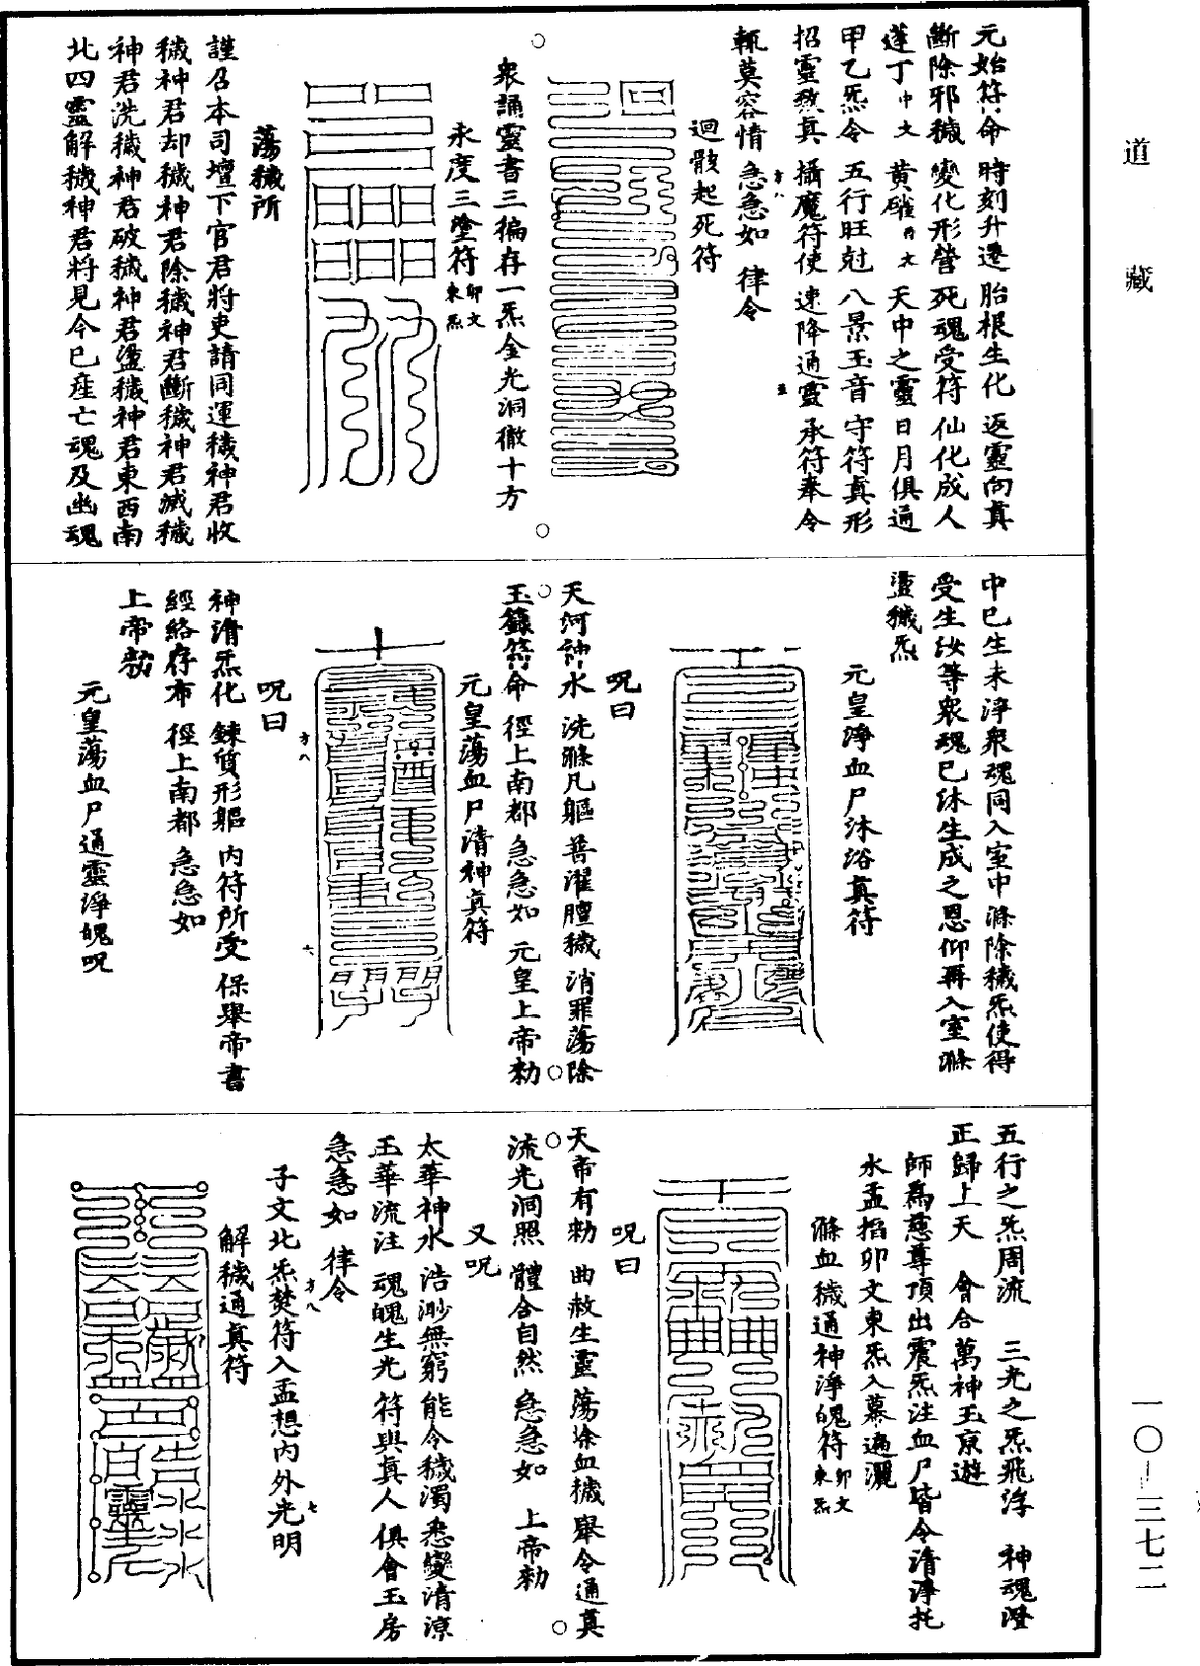 道藏
元始符命 時刻升遷 胎根生化 返靈向真
斷除邪穢 變化形骨 死魂受符 仙化成人
蓬丁中文 黄 丹文 天中之靈 日月俱通
甲乙炁令 五行旺尅 八景玉音 守符真形
招靈致真 攝魔符使 速降通靈 承符奉令
輒莫容情 急急如 律令
迴骸起死符
衆誦靈書三徧存一炁金光洞徹十方
永度三塗符卯文東炁
蕩穢所
謹召本司壇下官君將吏請同運穢神君收
穢神君却穢神君除穢神君斷穢神君滅穢
神君洗穢神君破穢神君盪穢神君東西南
北四靈解穢神君將見今已産亡魂及幽魂
中已生未淨衆魂同入室中滌除穢炁使得
受生汝等衆魂已沐生成之恩仰再入室滌
盪穢炁
元皇淨血尸沐浴真符
呪曰
天河神水 洗滌凡軀 普濯膻穢 消罪蕩除
玉籙符命 徑上南都 急急如 元皇上帝勑
元皇蕩血尸清神真符
呪曰
神清炁化 鍊質形軀 内符所受 保舉帝書
經絡存布 徑上南都 急急如
上帝勑
元皇蕩血尸通靈淨魄呪
五行之炁周流 三光之炁飛浮 神魂澄
正歸上天 會合萬神玉京遊
師爲慈尊頂出震炁注血尸皆令清淨托
水盂掐卯文東炁入幕遍灑
滌血穢通神淨魄符卯文東炁
呪曰
天帝有勑 曲赦生靈 蕩除血穢 舉令通真
流光洞照 體合自然 急急如 上帝勑
又呪
太華神水 浩渺無窮 能令穢濁悉變清凉
玉華流注 魂魄生光 符與真人 俱會玉房
急急如 律令
子文北炁焚符入盂想内外光明
解穢通真符
一〇—三七二